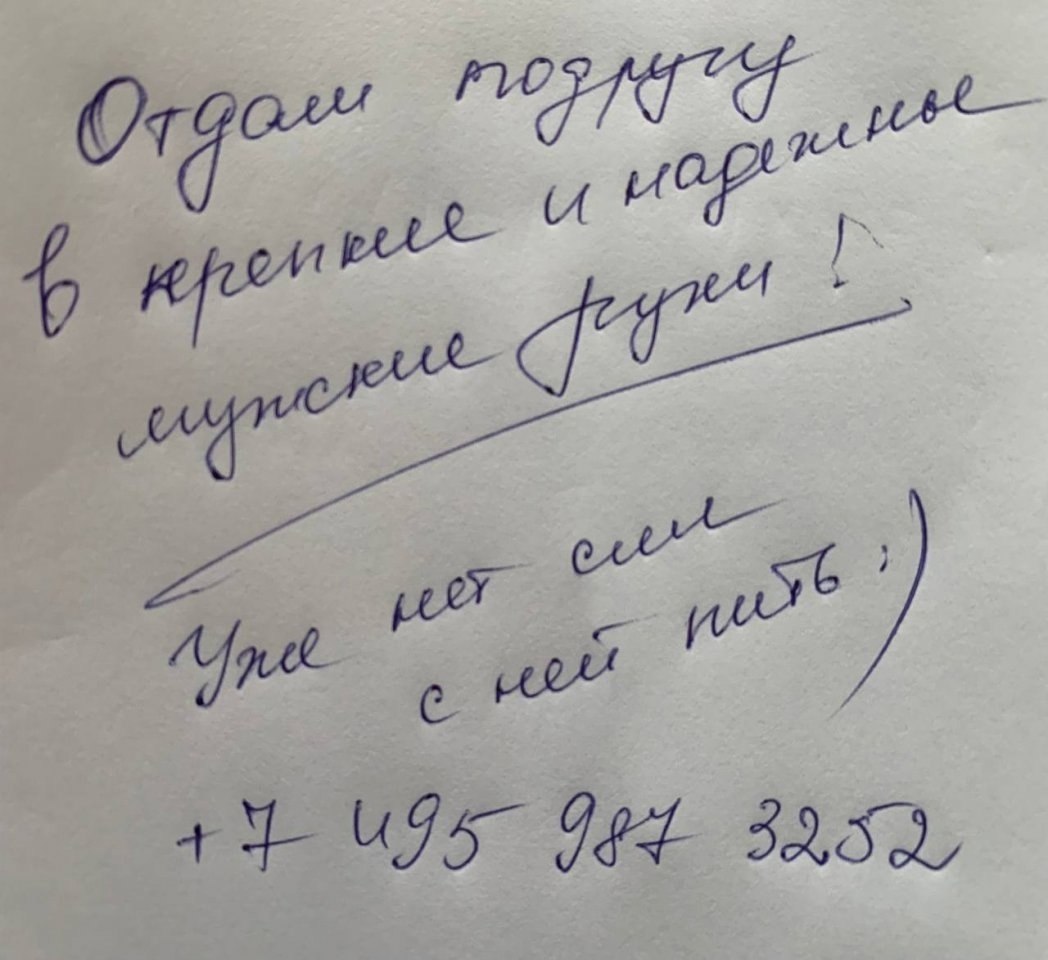 Отдам подругу
в крепкие и надежные
мужские руки!
Уже нет сил
с ней пить :)
+7 495 987 3252